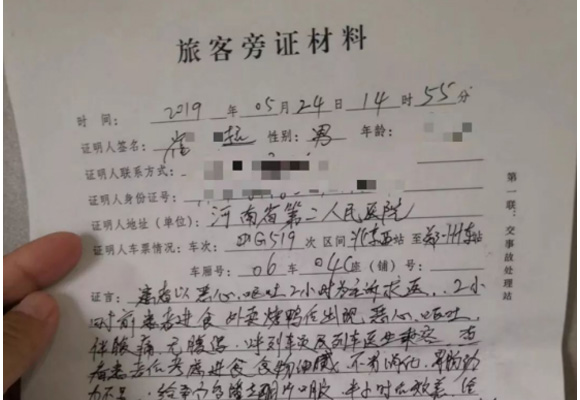 旅客旁证材料
时间：2019年05月24日14时55分
证明人签名：崔 超 性别：男 年龄：
证明人联系方式：
证明人身份证号：
证明人地址（单位）：河南省第二人民医院
证明人车票情况：车次：G519次 区间 北京西站 至 郑州东站
车厢号：06车 04C座（铺）号：
证言：患者以恶心、呕吐2小时为主诉求医，2小
时前患者进食外卖烤鸭后出现恶心、呕吐，
伴腹痛，无腹泻，呼列车员及列车医生乘客，查
看患者后考虑进食食物油腻，不易消化，胃动力
不足
第一联：交事故处理站